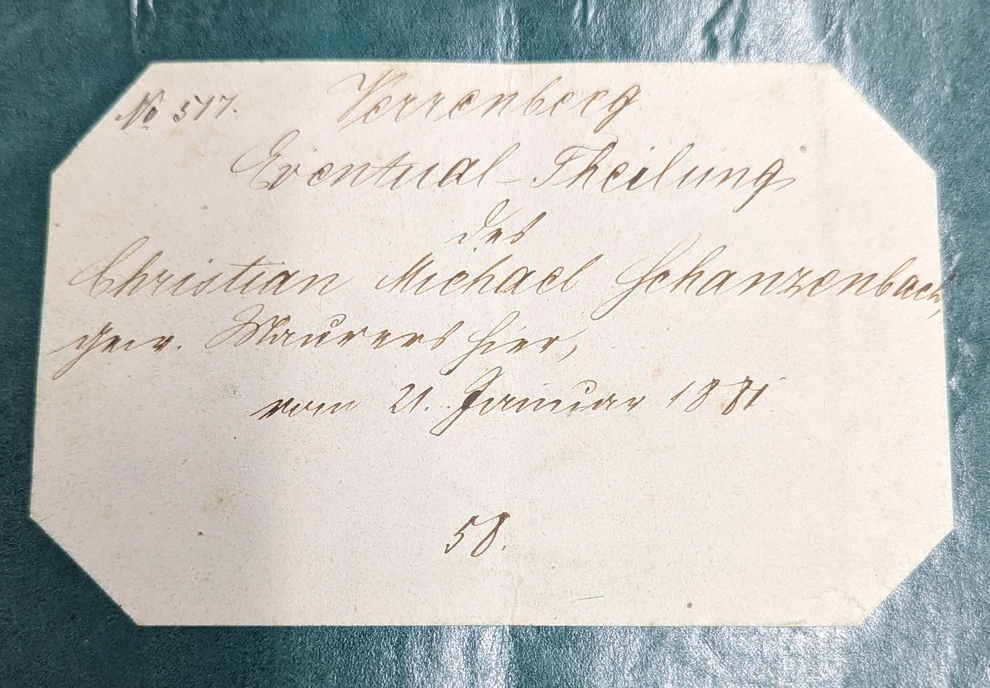 No 517. Verrenberg
Eventual-Theilung
des
Christian Michael Schanzenbach,
gew. Maurers hier,
vom 21. Januar 1881
58.